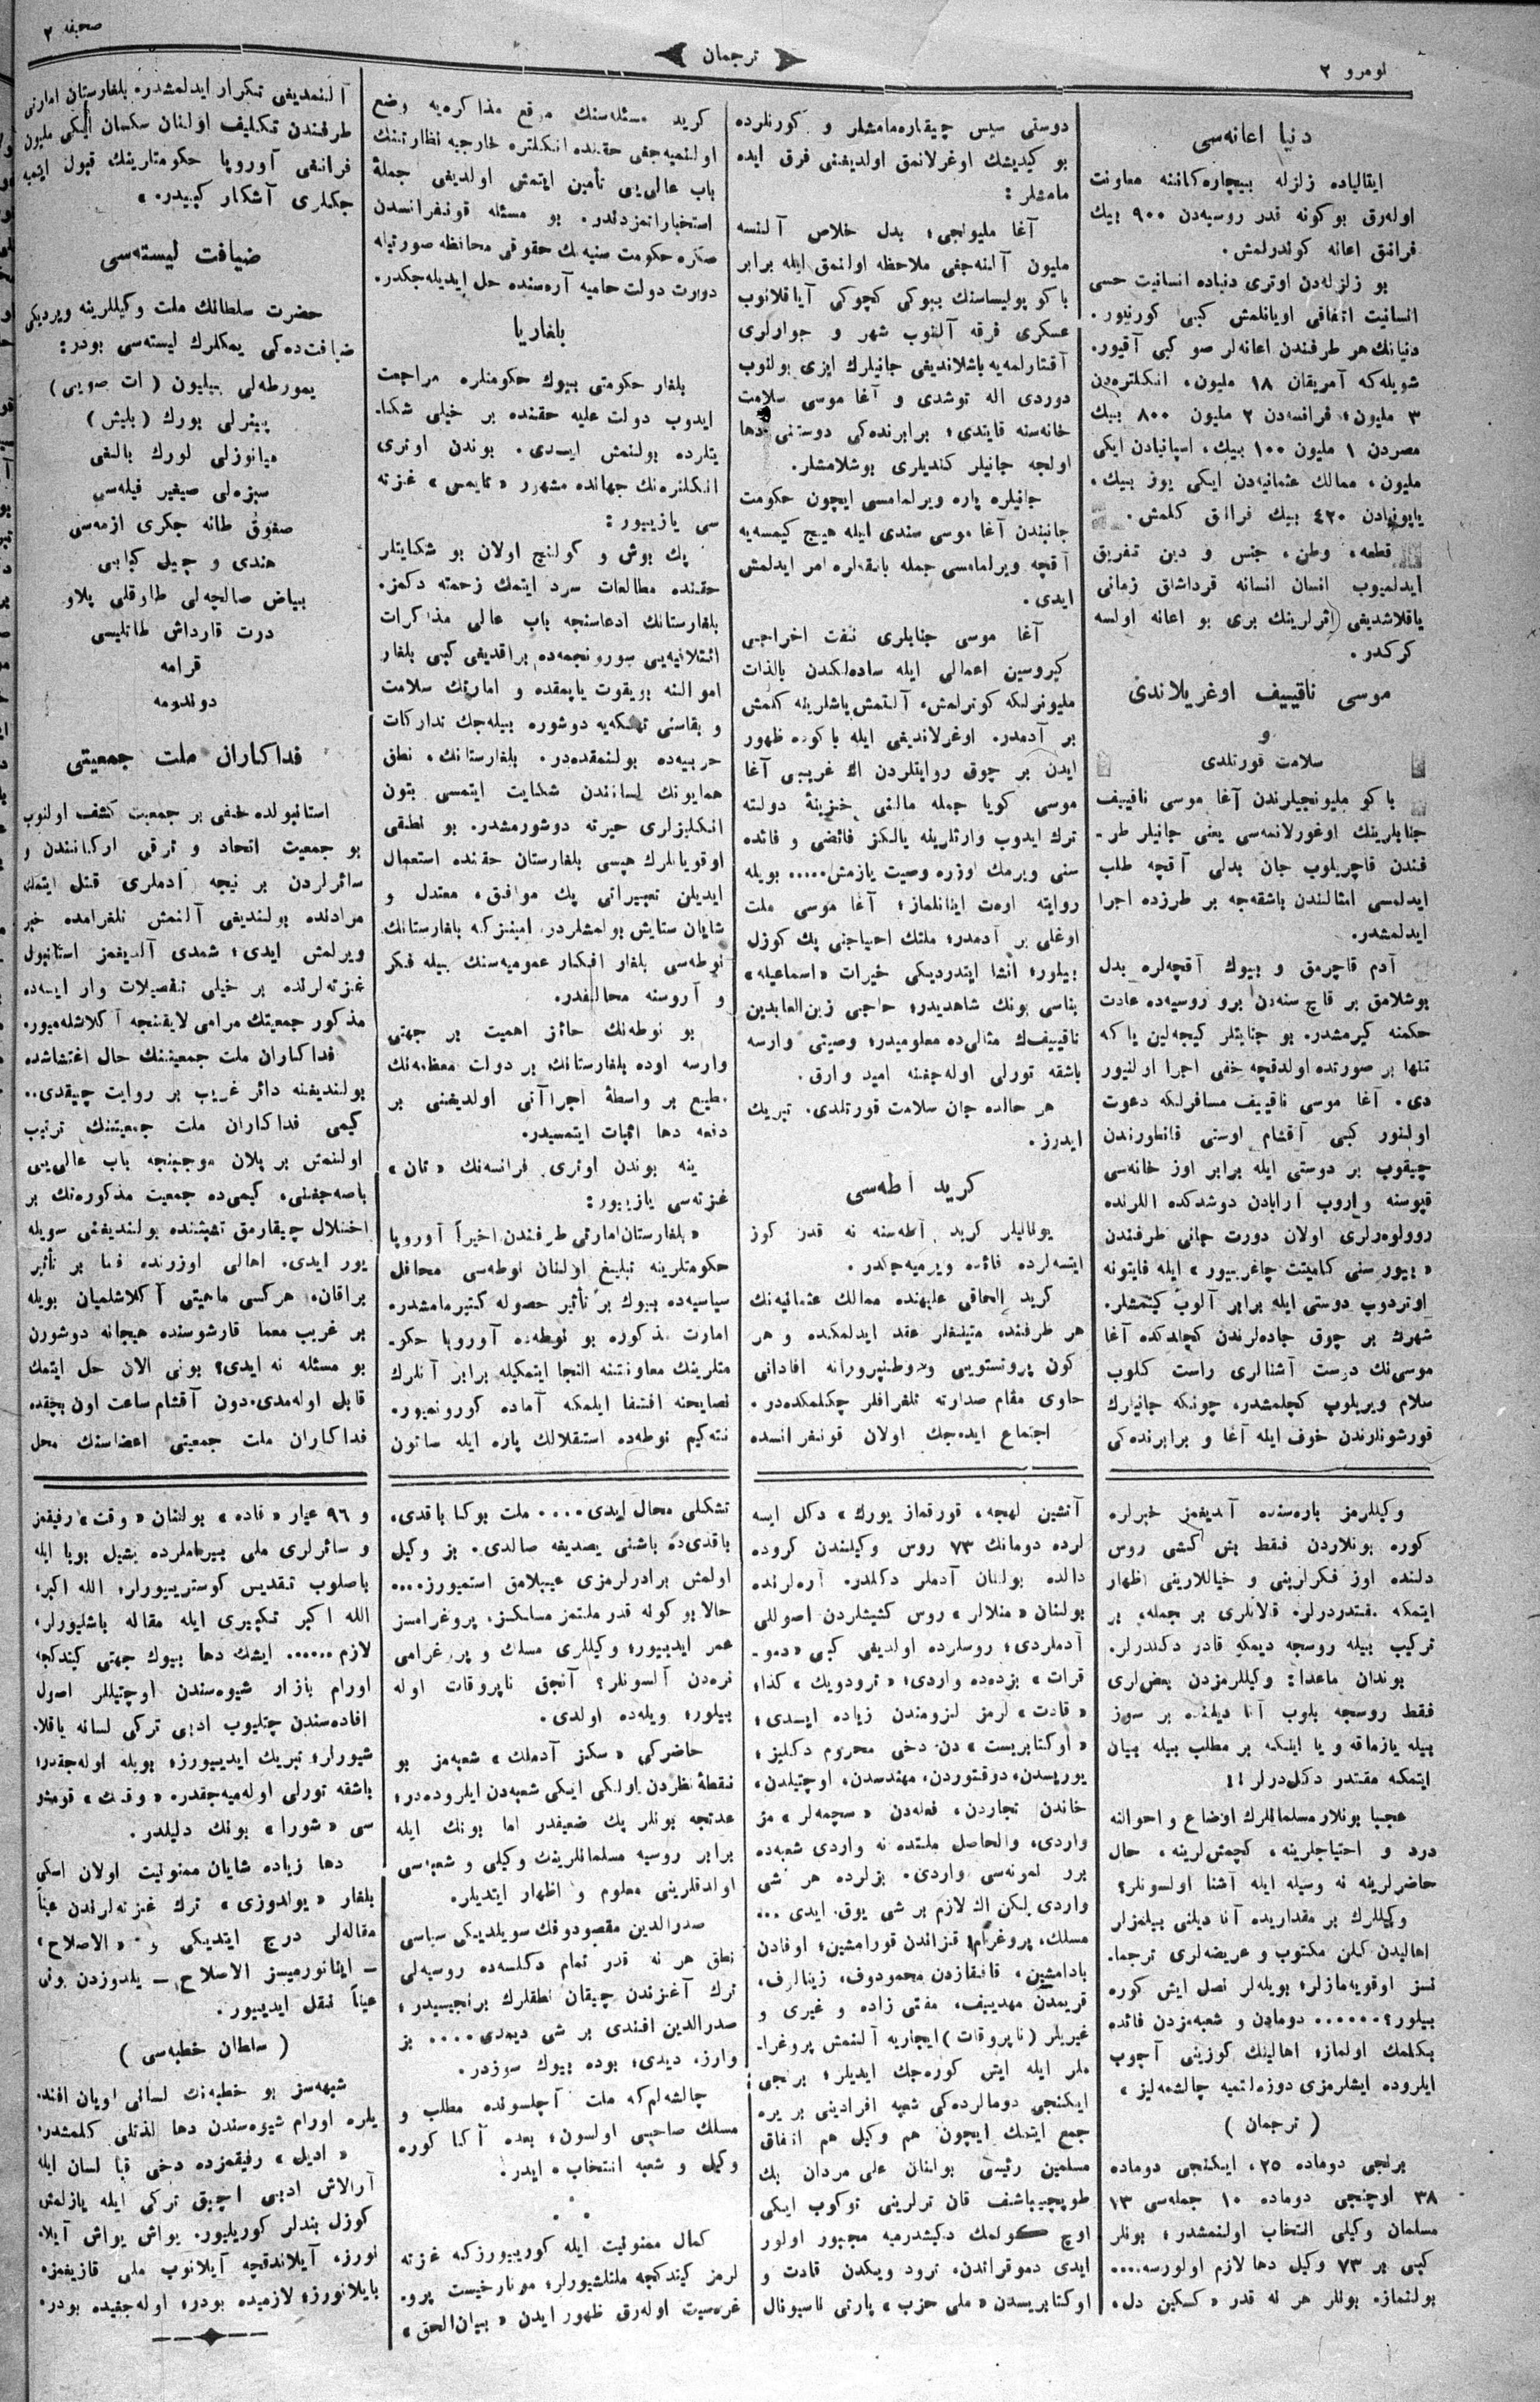 لومرو ۲
ترجمان
صحیفه ۲
دنیا اعانه‌سی
ایتالیاده زلزله بیچاره‌کاننه معاونت
اوله‌رق بو کونه قدر روسیه‌دن ۹۰۰ بیك
فرانق اعانه کوندرلمش.
بو زلزله‌دن اوتری دنیاده انسانیت حسی
انسانیت اتفاقی اویانلمش کبی کورنیور.
دنیانك هر طرفندن اعانه‌لر صو کبی آقیور.
شویله‌که آمریقان ۱۸ ملیون، انکلتره‌دن
۳ ملیون؛ فرانسه‌دن ۲ ملیون ۸۰۰ بیك
مصردن ۱ ملیون ۱۰۰ بیك، اسپانیادن ایکی
ملیون، ممالك عثمانیه‌دن ایکی یوز بیك،
یاپونیادن ٤۲۰ بیك فرانق کلمش.
قطعه، وطن، جنس و دین تفریق
ایدلمیوب انسان انسانه قرداشلق زمانی
یاقلاشدیغی اثرلرینك بری بو اعانه اولسه
کرکدر.
موسی ناقییف اوغریلاندی
و
سلامت قورتلدی
باکو ملیونجیلرندن آغا موسی ناقییف
جنابلرینك اوغورلانمه‌سی یعنی جانیلر طر-
فندن قاچریلوب جان بدلی آقچه طلب
ایدلمسی امثالندن باشقه‌جه بر طرزده اجرا
ایدلمشدر.
آدم قاچرمق و بیوك آقچه‌لره بدل
بوشلامق بر قاچ سنه‌دن برو روسیه‌ده عادت
حکمنه کیرمشدر. بو جنایتلر کیجه‌لین یا که
تنها بر صورتده اولدقچه خفی اجرا اولنیور
دی. آغا موسی ناقییف مسافرلکه دعوت
اولنور کبی آقشام اوستی قانطورندن
چیقوب بر دوستی ایله برابر اوز خانه‌سی
قپوسنه واروب آرابادن دوشدکده اللرنده
روولوه‌رلری اولان دورت جانی طرفندن
« بیور سنی کامیتت چاغریبور » ایله فایتونه
اوتردوب دوستی ایله برابر آلوب کیتمشلر.
شهرك بر چوق جاده‌لرندن کچلدکده آغا
موسی‌نك درست آشنالری راست کلوب
سلام ویریلوب کچلمشدر، چونکه جانیلرك
قورشونلرندن خوف ایله آغا و برابرنده‌کی
دوستی سس چیقاره‌مامشلر و کورنلرده
بو کیدیشك اوغرلانمق اولدیغنی فرق ایده
مامشلر:
آغا ملیونجی؛ بدل خلاص آلنسه
ملیون آلنه‌جغی ملاحظه اولنمق ایله برابر
باکو پولیساسنك بیوکی کچوکی آیاقلانوب
عسکری فرقه آلنوب شهر و جوارلری
آقتارلمه‌یه باشلاندیغی جانیلرك ایزی بولنوب
دوردی اله توشدی و آغا موسی سلامت
خانه‌سنه قایتدی؛ برابرنده‌کی دوستنی دها
اولجه جانیلر کندیلری بوشلامشلر.
جانیلره پاره ویرلمامسی ایچون حکومت
جانبندن آغا موسی سندی ایله هیچ کیمسه‌یه
آقچه ویرلمامسی جمله بانقه‌لره امر ایدلمش
ایدی.
آغا موسی جنابلری نفت اخراجی
کیروسین اعمالی ایله ساده‌لکدن بالذات
ملیونرلکه کوترلمش، آلتمش یاشلرینه کلمش
بر آدمدر. اوغرلاندیغی ایله باکوده ظهور
ایدن بر چوق روایتلردن اك غریبی آغا
موسی کویا جمله مالنی خزینۀ دولته
ترك ایدوب وارثلرینه یالکز فائضی و فائده
سنی ویرمك اوزره وصیت یازمش..... بویله
روایته اوت اینانلماز؛ آغا موسی ملت
اوغلی بر آدمدر؛ ملتك احتیاجنی پك کوزل
بیلور؛ انشا ایتدردیکی خیرات «اسماعیلیه»
بناسی بونك شاهدیدر؛ حاجی زین‌العابدین
ناقییف‌ك مثالی‌ده معلومیدر؛ وصیتی وارسه
باشقه تورلی اوله‌جغنه امید وارق.
هر حالده جان سلامت قورتلدی. تبریك
ایدرز.
کرید اطه‌سی
یونانیلر کرید آطه‌سنه نه قدر کوز
ایتسه‌لرده فائده ویرمیه‌جکدر.
کرید الحاقی علیهنده ممالك عثمانیه‌نك
هر طرفنده متینغلر عقد ایدلمکده و هر
کون پروتستویی و وطنپرورانه افادانی
حاوی مقام صدارته تلغرافلر چکلمکده‌در.
اجتماع ایده‌جك اولان قونفرانسده
کرید مسئله‌سنك موقع مذاکره‌یه وضع
اولنمیه‌جغی حقنده انکلتره خارجیه نظارتنك
باب عالی‌یی تأمین ایتمش اولدیغی جملۀ
استخباراتمزدندر. بو مسئله قونفرانسدن
صکره حکومت سنیه‌نك حقوقی محافظه صورتیله
دورت دولت حامیه آره‌سنده حل ایدیله‌جکدر.
بلغاریا
بلغار حکومتی بیوك حکومتلره مراجعت
ایدوب دولت علیه حقنده بر خیلی شکا-
یتلرده بولنمش ایسدی. بوندن اوتری
انکلتره‌نك جهانده مشهور «تایمس» غزته
سی یازیبور:
پك بوش و کولنج اولان بو شکایتلر
حقنده مطالعات سرد ایتمك زحمته دکمز.
بلغارستانك ادعاسنجه باب عالی مذاکرات
ائتلافیه‌یی سورونجمه‌ده براقدیغی کبی بلغار
امواله بویقوت یاپمقده و امارتك سلامت
و بقاسنی تهلکه‌یه دوشوره بیله‌جك تدارکات
حربیه‌ده بولنمقده‌در. بلغارستانك، نطق
همایونك لسانندن شکایت ایتمسی بتون
انکلیزلری حیرته دوشورمشدر. بو نطقی
اوقویانلرك هپسی بلغارستان حقنده استعمال
ایدیلن تعبیراتی پك موافق، معتدل و
شایان ستایش بولمشلردر. امینز که بلغارستانك
نوطه‌سی بلغار افکار عمومیه‌سنك بیله فکر
و آرزوسنه مخالفدر.
بو نوطه‌نك حائز اهمیت بر جهتی
وارسه اوده بلغارستانك بر دولت معظمه‌نك
مطیع بر واسطۀ اجراآتی اولدیغنی بر
دفعه دها اثبات ایتمسیدر.
ینه بوندن اوتری فرانسه‌نك «تان»
غزته‌سی یازیبور:
«بلغارستان امارتی طرفندن اخیراً آوروپا
حکومتلرینه تبلیغ اولنان نوطه‌سی محافل
سیاسیه‌ده بیوك بر تأثیر حصوله کتیرمامشدر.
امارت مذکوره بو نوطه‌ده آوروپا حکو-
متلرینك معاونتنه التجا ایتمکله برابر آنلرك
نصایحنه اقتفا ایلمکه آماده کورونمیور.
نته‌کیم نوطه‌ده استقلالك پاره ایله ساتون
آلنمدیغی تکرار ایدلمشدر. بلغارستان امارتی
طرفندن تکلیف اولنان سکسان ایکی ملیون
فرانغی آوروپا حکومتلرینك قبول ایتمیه
جکلری آشکار کبیدر.»
ضیافت لیسته‌سی
حضرت سلطانك ملت وکیللرینه ویردیکی
ضیافت‌ده‌کی یمکلرك لیسته‌سی بودر:
یمورطه‌لی بیلیون (ات صویی)
پینرلی بورك (بلیش)
میانوزلی لورك بالغی
سبزه‌لی صیغیر فیله‌سی
صغوق طانه جکری ازمه‌سی
هندی و چیل کبابی
بیاض صالچه‌لی طاوقلی پلاو
درت قارداش طاتلیسی
قرامه
دوندرمه
فداکاران ملت جمعیتی
استانبولده خفی بر جمعیت کشف اولنوب
بو جمعیت اتحاد و ترقی ارکانندن و
سائرلردن بر نیچه آدملری قتل ایتمك
مرادنده بولندیغی آلنمش تلغرامده خبر
ویرلمش ایدی؛ شمدی آلدیغمز استانبول
غزته‌لرنده بر خیلی تفصیلات وار ایسه‌ده
مذکور جمعیتك مرامی لایقنجه آکلاشلمه‌میور.
فداکاران ملت جمعیتنك حال اغتشاشده
بولندیغنه دائر غریب بر روایت چیقدی..
کیمی فداکاران ملت جمعیتنك ترتیب
اولنمش بر پلان موجبنجه باب عالی‌یی
باصه‌جغنی، کیمی‌ده جمعیت مذکوره‌نك بر
اختلال چیقارمق تشبثنده بولندیغنی سویله
یور ایدی. اهالی اوزرنده فنا بر تأثیر
براقان، هرکسی ماهیتی آکلاشلمیان بویله
بر غریب معما قارشوسنده هیجانه دوشورن
بو مسئله نه ایدی؟ بونی الان حل ایتمك
قابل اوله‌مدی. دون آقشام ساعت اون بچقده
فداکاران ملت جمعیتی اعضاسنك محل
وکیللرمز باره‌سنده آلدیغمز خبرلره
کوره بونلاردن فقط بش کشی روس
دلنده اوز فکرلرینی و خیاللارینی اظهار
ایتمکه مقتدردرلر. قلانلری بر جمله، بر
ترکیب بیله روسجه دیمکه قادر دکلدرلر.
بوندان ماعدا: وکیللرمزدن بعض‌لری
فقط روسجه بلوب آنا دیلنده بر سوز
بیله یازماقه و یا ایتکه بر مطلب بیله بیان
ایتمکه مقتدر دکل‌درلر!!
عجبا بونلار مسلمانلرك اوضاع و احوالنه
درد و احتیاجلرینه، کچمش‌لرینه، حال
حاضرلرینه نه وسیله ایله آشنا اولسونلر؟
وکیللرك بر مقداریده آنا دیلنی بیلمزلر
اهالیدن کلن مکتوب و عریضه‌لری ترجما-
نسز اوقویه‌مازلر؛ بویله‌لر نصل ایش کوره
بیلور؟...... دومادن و شعبه‌مزدن فائده
بکلمك اولماز؛ اهالینك کوزینی آچوب
ایلروده ایشلرمزی دوزه‌لتمیه چالشمه‌لیز»
( ترجمان )
برنجی دوماده ۲۵، ایکنجی دوماده
۳۸ اوچنجی دوماده ۱۰ جمله‌سی ۷۳
مسلمان وکیلی انتخاب اولنمشدر؛ بونلر
کبی بر ۷۳ وکیل دها لازم اولورسه....
بولنماز. بونلر هر نه قدر « کسکین دل،
آتشین لهجه، قورقماز یورك » دکل ایسه
لرده دومانك ۷۳ روس وکیلندن کروده
دالده بولنان آدملر دکلدر. آره‌لرنده
بولنان « منلالر » روس کشیشلردن اصوللی
آدملردی؛ روسلرده اولدیغی کبی «دمو-
قرات» بزده‌ده واردی؛ «ترودویك» کذا؛
«قادت» لرمز لزومندن زیاده ایسدی؛
«اوکتابریست» دن دخی محروم دکلیز؛
یوریستدن، دوقتوردن، مهندسدن، اوچتیلدن،
خاندن تجاردن، فعله‌دن «سچمه‌لر» مز
واردی، والحاصل ملتده نه واردی شعبه‌ده
برر نمونه‌سی واردی. بزلرده هر شی
واردی لکن اك لازم بر شی یوق ایدی...
مسلك، پروغرام؛ قزاندن قورامشین؛ اوفادن
بادامشین، قافقازدن محمودوف، زینالوف،
قریمدن مهدییف، مفتی زاده و غیری و
غیریلر (ناپروقات) ایچاریه آلنمش پروغرا-
ملر ایله ایش کوره‌جك ایدیلر؛ برنجی
ایکنجی دومالرده‌کی شعبه افرادینی بر یره
جمع ایتمك ایچون هم وکیل هم اتفاق
مسلمین رئیسی بولنان علی مردان بك
طوپچیباشف قان ترلرینی توکوب ایکی
اوچ کوملك دکیشدرمیه مجبور اولور
ایدی دموقراتدن، ترودویکدن قادت و
اوکتابریستدن «ملی حزب» پارتی ناسیونال
تشکلی محال ایدی.... ملت بوکا باقدی،
باقدی‌ده باشنی یصدیغه صالدی. بز وکیل
اولمش برادرلرمزی عیبلامق استمیورز....
حالا بو کونه قدر ملتمز مسلکسز، پروغرامسز
عمر ایدیبور؛ وکیللری مسلك و پروغرامی
نره‌دن آلسونلر؟ آنجق ناپروقات اوله
بیلور؛ ویله‌ده اولدی.
حاضرکی « سکز آدملك » شعبه‌مز بو
نقطۀ نظردن اولکی ایکی شعبه‌دن ایلروده‌در؛
عدتجه بونلر پك ضعیفدر اما بونك ایله
برابر روسیه مسلمانلرینك وکیلی و شعبه‌سی
اولدقلرینی معلوم و اظهار ایتدیلر.
صدرالدین مقصودوفك سویلدیکی سیاسی
نطق هر نه قدر تمام دکلسه‌ده روسیه‌لی
ترك آغزندن چیقان نطقلرك برنجیسیدر؛
صدرالدین افندی بر شی دیمه‌دی.... بز
وارز. دیدی؛ بوده بیوك سوزدر.
چالشه‌لم که ملت آچلسونده مطلب و
مسلك صاحبی اولسون؛ بعده آکا کوره
وکیل و شعبه انتخاب ایدر.
کمال ممنونیت ایله کوریبورزکه غزته
لرمز کیتدکجه ملتلشیورلر؛ مونارخیست پرو-
غره‌سیت اوله‌رق ظهور ایدن «بیان‌الحق»
و ۹۶ عیار «قاده» بولنان «وقت» رفیقمز
و سائرلری ملی بیراملرده یشیل بویا ایله
باصلوب تقدیس کوستریبورلر؛ الله اکبر،
الله اکبر تکبیری ایله مقاله باشلیورلر،
لازم...... ایشك دها بیوك جهتی کیتدکجه
اورام بازار شیوه‌سندن اوچتیللر اصول
افاده‌سندن چتلیوب ادبی ترکی لسانه یاقلا-
شیورلر؛ تبریك ایدیبورز؛ بویله اوله‌جقدر؛
باشقه تورلی اوله‌میه‌جقدر. «وقت» قومشو
سی «شورا» بونك دلیلدر.
دها زیاده شایان ممنونیت اولان اسکی
بلغار «یولدوزی» ترك غزته‌لرندن عیناً
مقاله‌لر درج ایتدیکی و «الاصلاح»
— اینانورمیسز الاصلاح — یلدوزدن بونی
عیناً نقل ایدیبور.
( سلطان خطبه‌سی )
شبهه‌سز بو خطبه‌نك لسانی اویان افند-
یلره اورام شیوه‌سندن دها لذتلی کلمشدر.
« ادیل » رفیقمزده دخی قبا لسان ایله
آرالاش ادبی آچیق ترکی ایله یازلمش
کوزل بندلر کوریلیور. یواش یواش آیلا-
نورز، آیلاندقچه آیلانوب ملی قازیغمزه
بایلانورز؛ لازمیده بودر؛ اوله‌جغیده بودر.